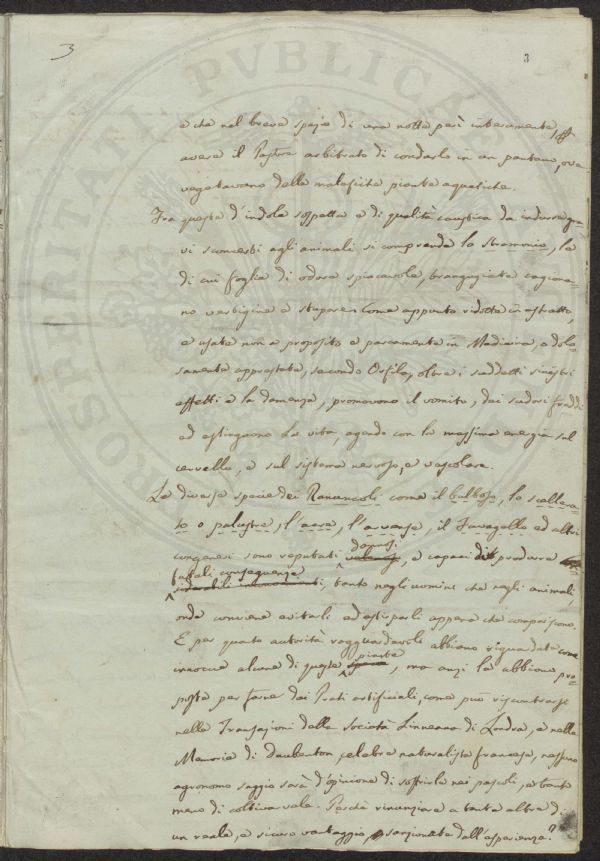 3
3
e che nel breve spazio di una notte perì interamente,
avere il Pastore arbitrato di condarlo in un pantano, ove
vegetavano delle malefiche piante aquatiche.
Fra queste d'indole sospetta e di qualità caustica da indurre gra=
vi sconcerti agli animali si comprende lo stramonio, le
di cui foglie di odore spiacevole, trangugiate cagiona=
no vertigine e stupore; come appunto ridotte in estratto,
e usate non a proposito e parcamente in Medicina, o dolo=
samente apprestate, secondo Orfila, oltre i suddetti sinistri
effetti e la demenza, promovono il vomito, dai sudori freddi
ed estinguono la vita, agendo con la massima energia sul
cervello, e sul sistema nervoso, e vascolare.
Le diverse specie dei Ranuncoli come il bulboso, lo scellera=
to o palustre, l'acre, l'arvense, il Favagello ed altri
congeneri sono reputati dannosi, e capaci di produrre
fatali conseguenze, tanto negli uomini che negli animali,
onde conviene evitarli ed estirparli appena che compariscono.
E per quanto autorità ragguardevoli abbiano riguardate come
innocue alcune di queste piante, ma anzi le abbiano pro=
poste per farne dei Prati artificiali, come può riscontrarsi
nelle Transazioni della Società Linneana di Londra, e nella
Memoria di Daubenton celebre naturalista francese, nessuno
agronomo saggio sarà d'opinione di soffrirle nei pascoli, e tanto
meno di coltivarvele. Perchè rinunziare a tante altre di
un reale, e sicuro vantaggio, sanzionate dall'esperienza?
PROSPERITATI PVBLICAE